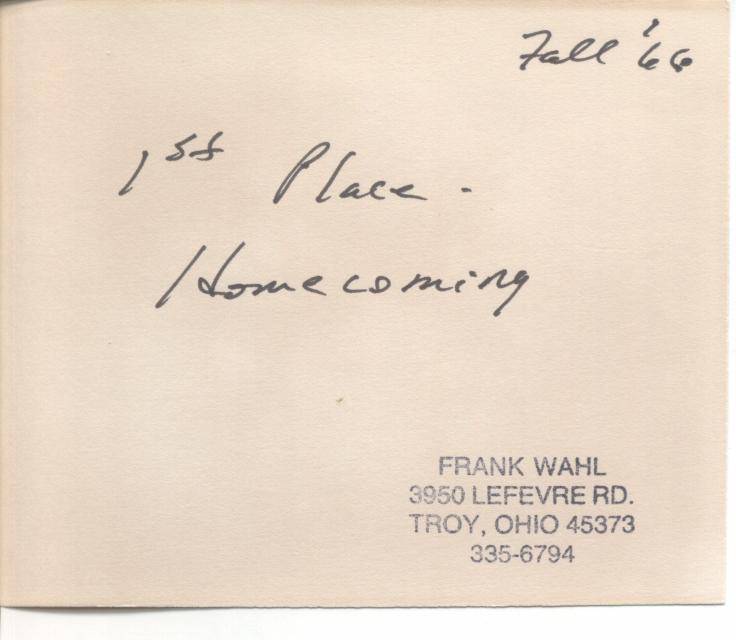 Fall '66
1st Place -
Homecoming
FRANK WAHL
3950 LEFEVRE RD.
TROY, OHIO 45373
335-6794